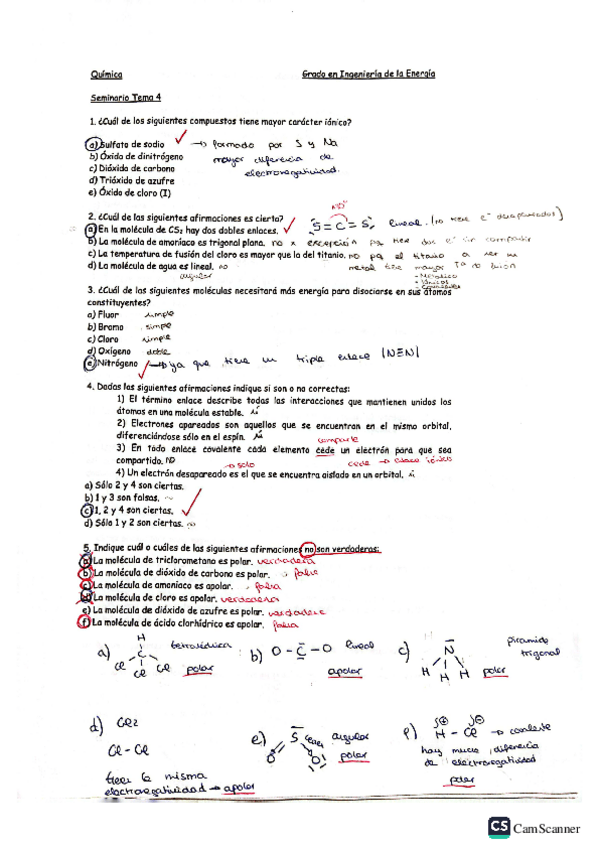 Química Grado en Ingeniería de la Energía
Seminario Tema 4
1. ¿Cuál de los siguientes compuestos tiene mayor carácter iónico?
a) Sulfato de sodio → formado por S y Na
b) Óxido de dinitrógeno mayor diferencia de
c) Dióxido de carbono electronegatividad.
d) Trióxido de azufre
e) Óxido de cloro (I)
2. ¿Cuál de las siguientes afirmaciones es cierta?
a) En la molécula de CS2 hay dos dobles enlaces. S=C=S, lineal. (no tiene e- desapareados)
b) La molécula de amoníaco es trigonal plana. no
c) La temperatura de fusión del cloro es mayor que la del titanio. no el titanio
d) La molécula de agua es lineal. no metal mayor
angular
- Metálico
- Iónicos
- Covalentes
3. ¿Cuál de las siguientes moléculas necesitará más energía para disociarse en sus átomos
constituyentes?
a) Fluor simple
b) Bromo simple
c) Cloro simple
d) Oxígeno doble
e) Nitrógeno → ya que tiene un triple enlace |N≡N|
4. Dadas las siguientes afirmaciones indique si son o no correctas:
1) El término enlace describe todas las interacciones que mantienen unidos los
átomos en una molécula estable. sí
2) Electrones apareados son aquellos que se encuentran en el mismo orbital,
diferenciándose sólo en el espín. sí
comparte
3) En todo enlace covalente cada elemento cede un electrón para que sea
compartido. NO → solo cede → enlace iónico
4) Un electrón desapareado es el que se encuentra aislado en un orbital. sí
a) Sólo 2 y 4 son ciertas.
b) 1 y 3 son falsas. no
c) 1, 2 y 4 son ciertas.
d) Sólo 1 y 2 son ciertas. no
5. Indique cuál o cuáles de las siguientes afirmaciones no son verdaderas:
a) La molécula de triclorometano es polar. verdadera
b) La molécula de dióxido de carbono es polar. falsa
c) La molécula de amoníaco es apolar. falsa
d) La molécula de cloro es apolar. verdadera
e) La molécula de dióxido de azufre es polar. verdadera
f) La molécula de ácido clorhídrico es apolar. falsa
a) H C Cl Cl Cl tetraédrica polar
b) O-C-O lineal apolar
c) N H H H pirámide trigonal polar
d) Cl2
Cl-Cl
tienen la misma
electronegatividad → apolar
e) S O O angular polar
f) H-Cl → covalente
hay mucha diferencia
de electronegatividad
polar
CS CamScanner